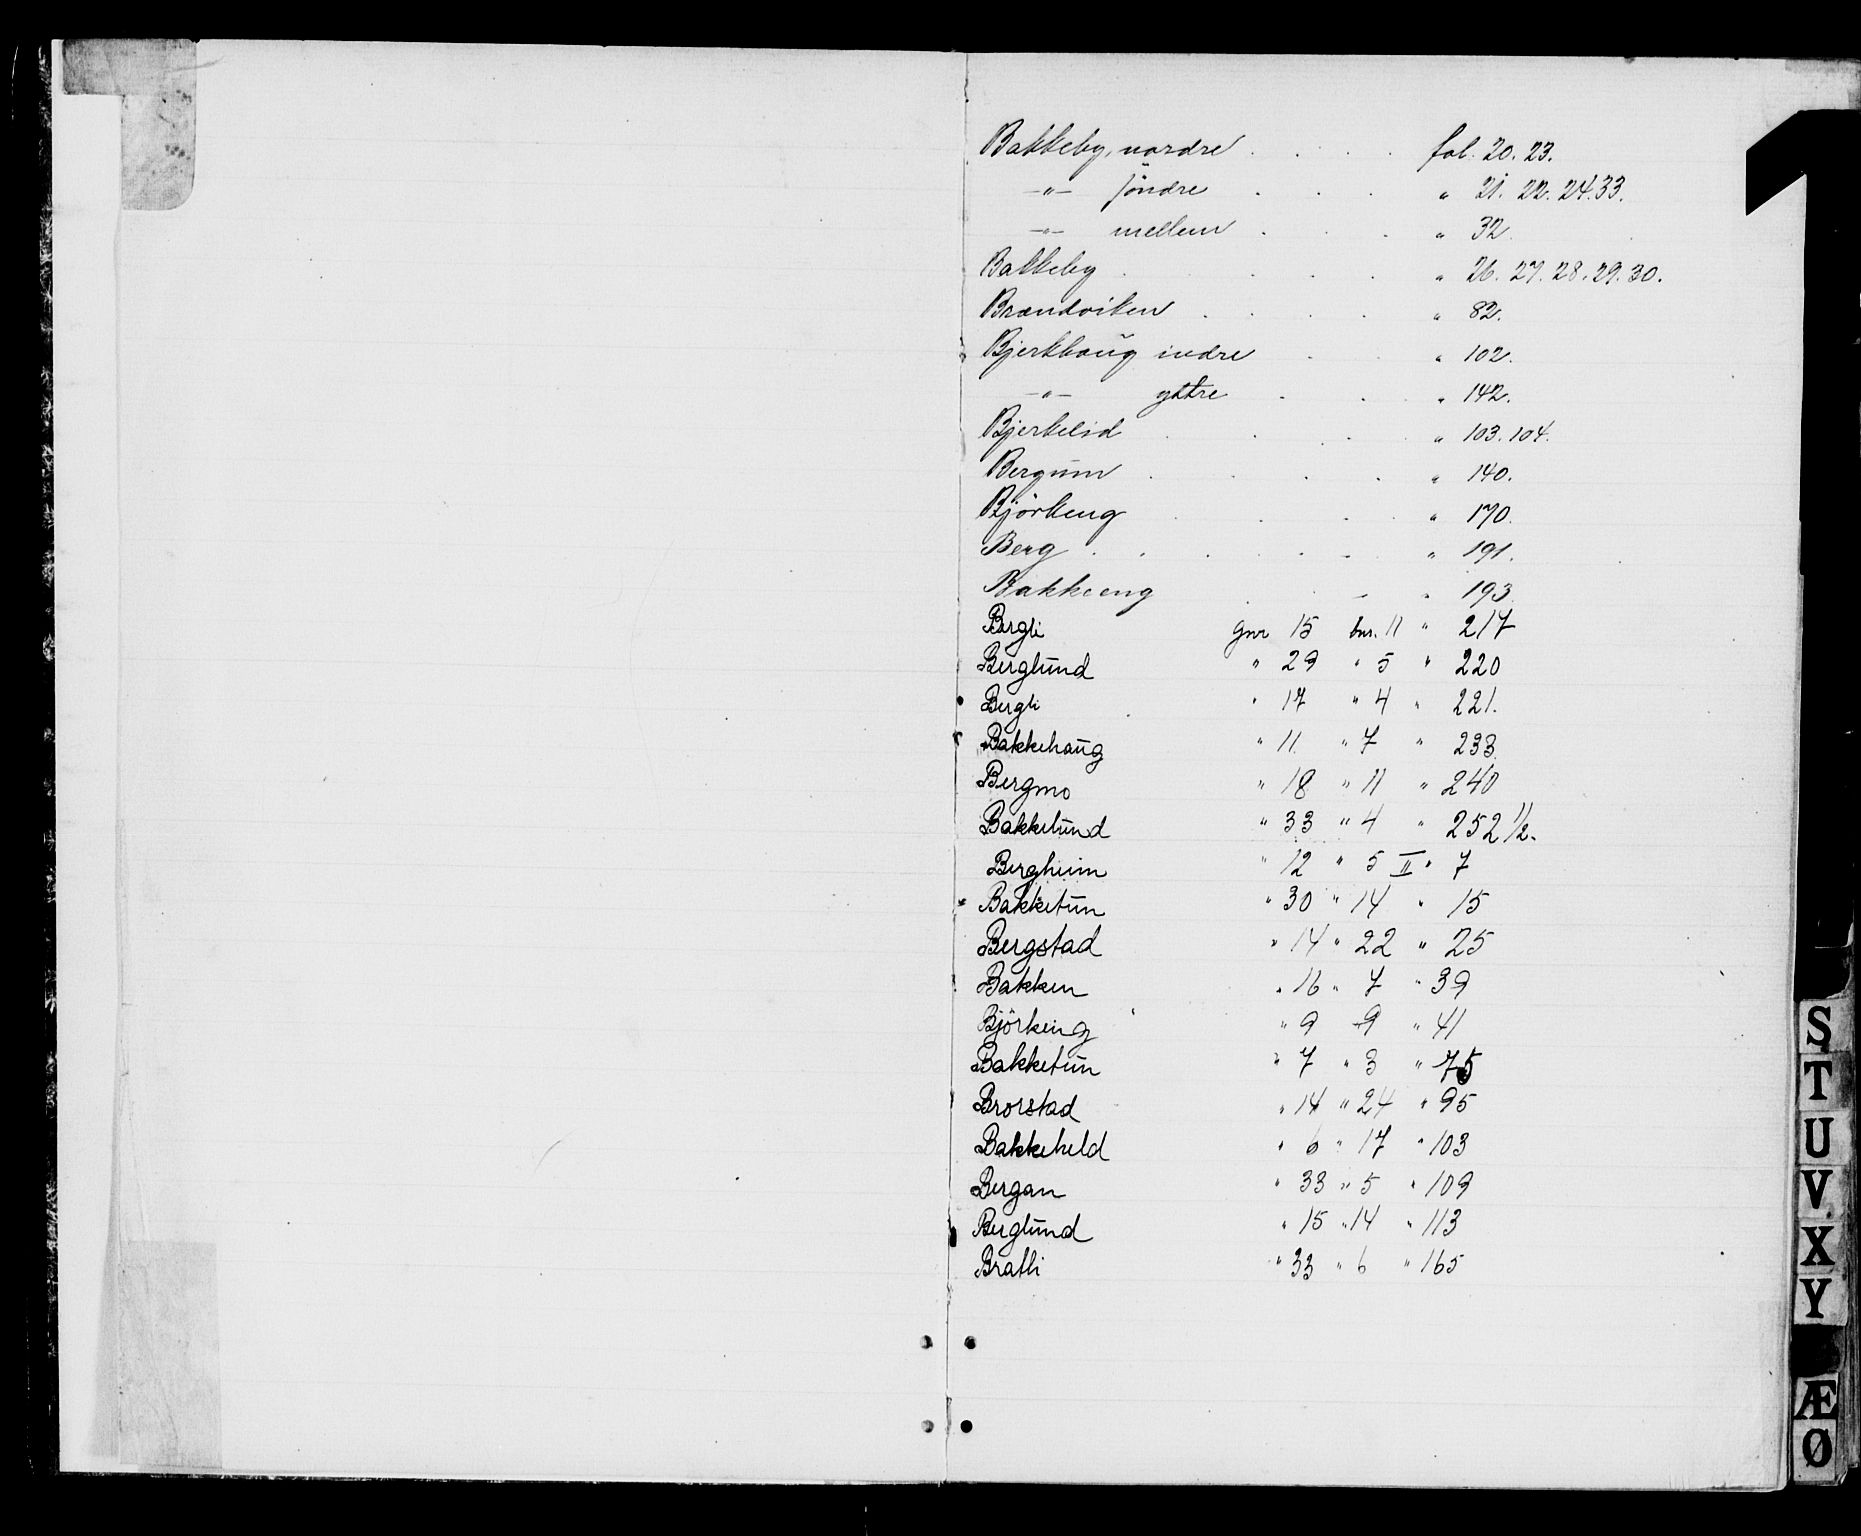 Bakkeby, nordre . . . . fol. 20. 23.
-"- söndre . . . " 21. 22. 24. 33.
-"- mellem . . . " 32.
Bakkeby . . . . " 26. 27. 28. 29. 30.
Brændviken . . . . " 82.
Bjerkhaug indre . . " 102.
-"- yttre . . . " 142.
Bjerkelid . . . . " 103. 104.
Bergum . . . " 140.
Björkeng . . . . " 170.
Berg . . . . . " 191.
Bakkeeng . . . " 193.
Bergli gnr 15 bnr. 11 " 217
Berglund " 29 " 5 " 220
Bergli " 17 " 4 " 221.
Bakkehaug " 11 " 7 " 233
Bergmo " 18 " 11 " 240
Bakkelund " 33 " 4 " 252 1/2.
Bergheim " 12 " 5 II " 7
Bakketun " 30 " 14 " 15
Bergstad " 14 " 22 " 25
Bakken " 16 " 7 " 39
Björkeng " 9 " 9 " 41
Bakketun " 7 " 3 " 75
Brorstad " 14 " 24 " 95
Bakkeheld " 6 " 17 " 103
Bergan " 33 " 5 " 109
Berglund " 15 " 14 " 113
Bratli " 33 " 6 " 165
S
T
U
V
X
Y
Æ
Ø